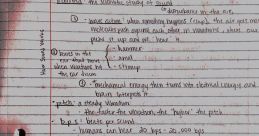 the scientific study of sound
disturbances in the air
① "wave action" when something happens (clap), the air goes
molecules push against each other in vibrations, where our
ears pick it up and we hear it.
How Sound Works
② bones in the ear that move when vibrations hit the ear drum
- hammer
- anvil
- stirrup
③ "mechanical energy then turns into electrical energy and
brain interprets it
pitch: a steady vibration
the faster the vibration, the "higher" the pitch
b.p.s: beats per second
- humans can hear 20 bps - 20,000 bps